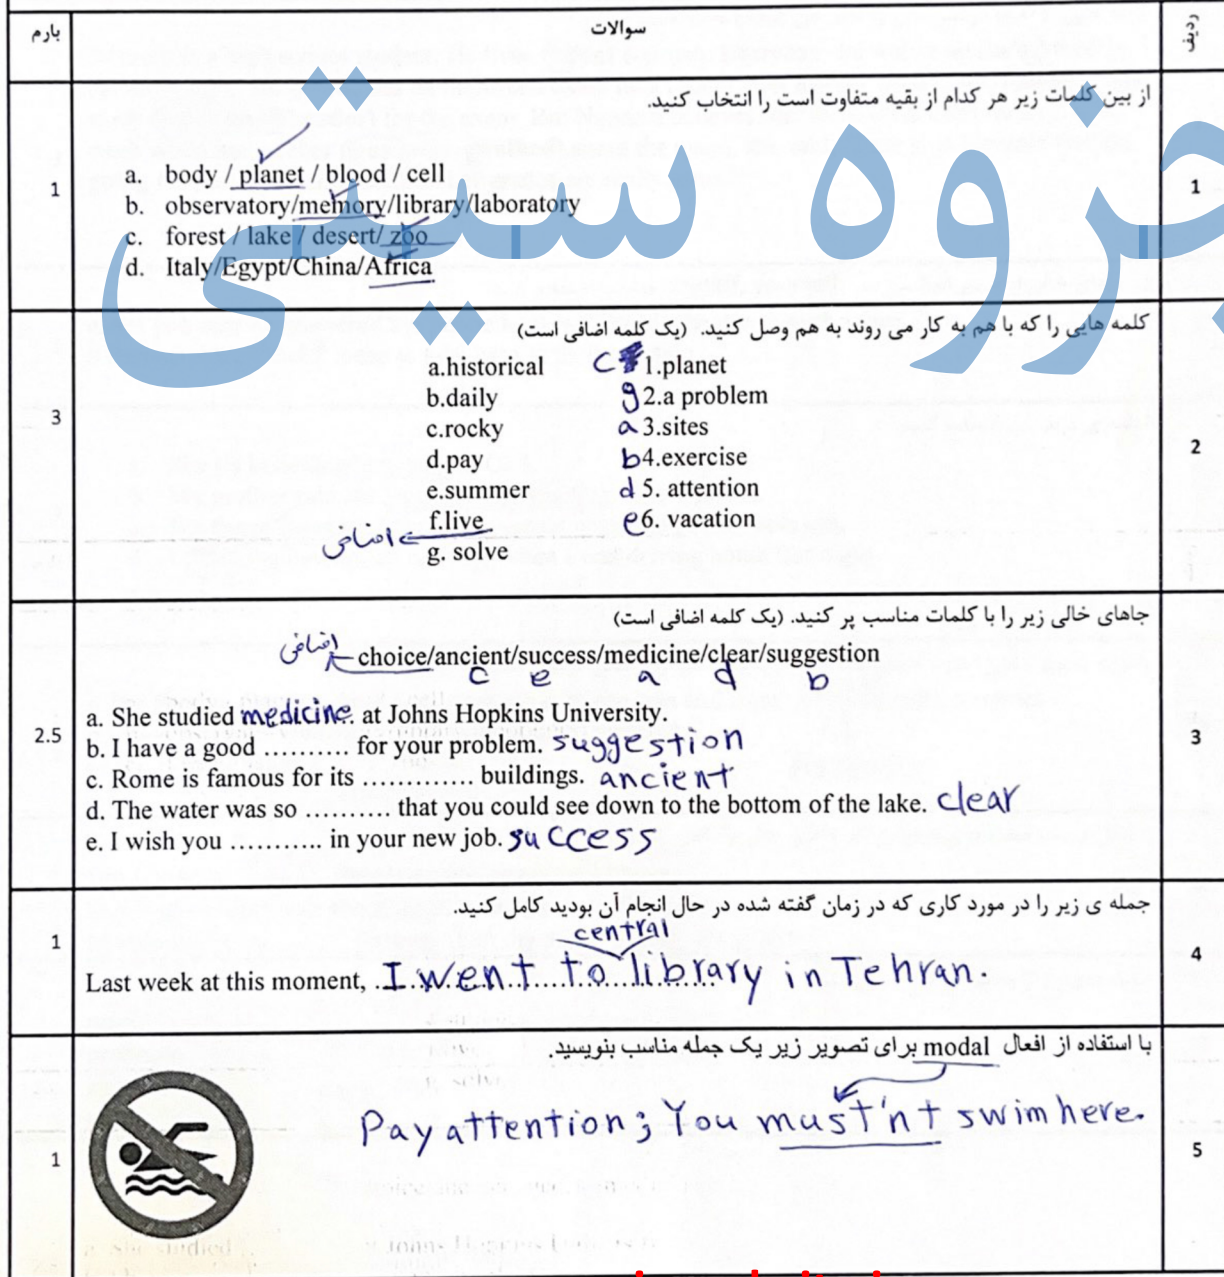 بارم
سوالات
ردیف
از بین کلمات زیر هر کدام از بقیه متفاوت است را انتخاب کنید.
1
1
a. body / planet / blood / cell
b. observatory/memory/library/laboratory
c. forest / lake / desert/ zoo
d. Italy/Egypt/China/Africa
جزوه سیتی
کلمه هایی را که با هم به کار می روند به هم وصل کنید. (یک کلمه اضافی است)
3
2
a.historical c 1.planet
b.daily g 2.a problem
c.rocky a 3.sites
d.pay b 4.exercise
e.summer d 5. attention
f.live e 6. vacation
اضافی
g. solve
جاهای خالی زیر را با کلمات مناسب پر کنید. (یک کلمه اضافی است)
اضافی
choice/ancient/success/medicine/clear/suggestion
c e a d b
2.5
3
a. She studied medicine at Johns Hopkins University.
b. I have a good .......... for your problem. suggestion
c. Rome is famous for its ............. buildings. ancient
d. The water was so .......... that you could see down to the bottom of the lake. clear
e. I wish you ........... in your new job. success
جمله ی زیر را در مورد کاری که در زمان گفته شده در حال انجام آن بودید کامل کنید.
1
4
central
Last week at this moment, I went to library in Tehran.
با استفاده از افعال modal برای تصویر زیر یک جمله مناسب بنویسید.
1
5
Pay attention; You must'nt swim here.